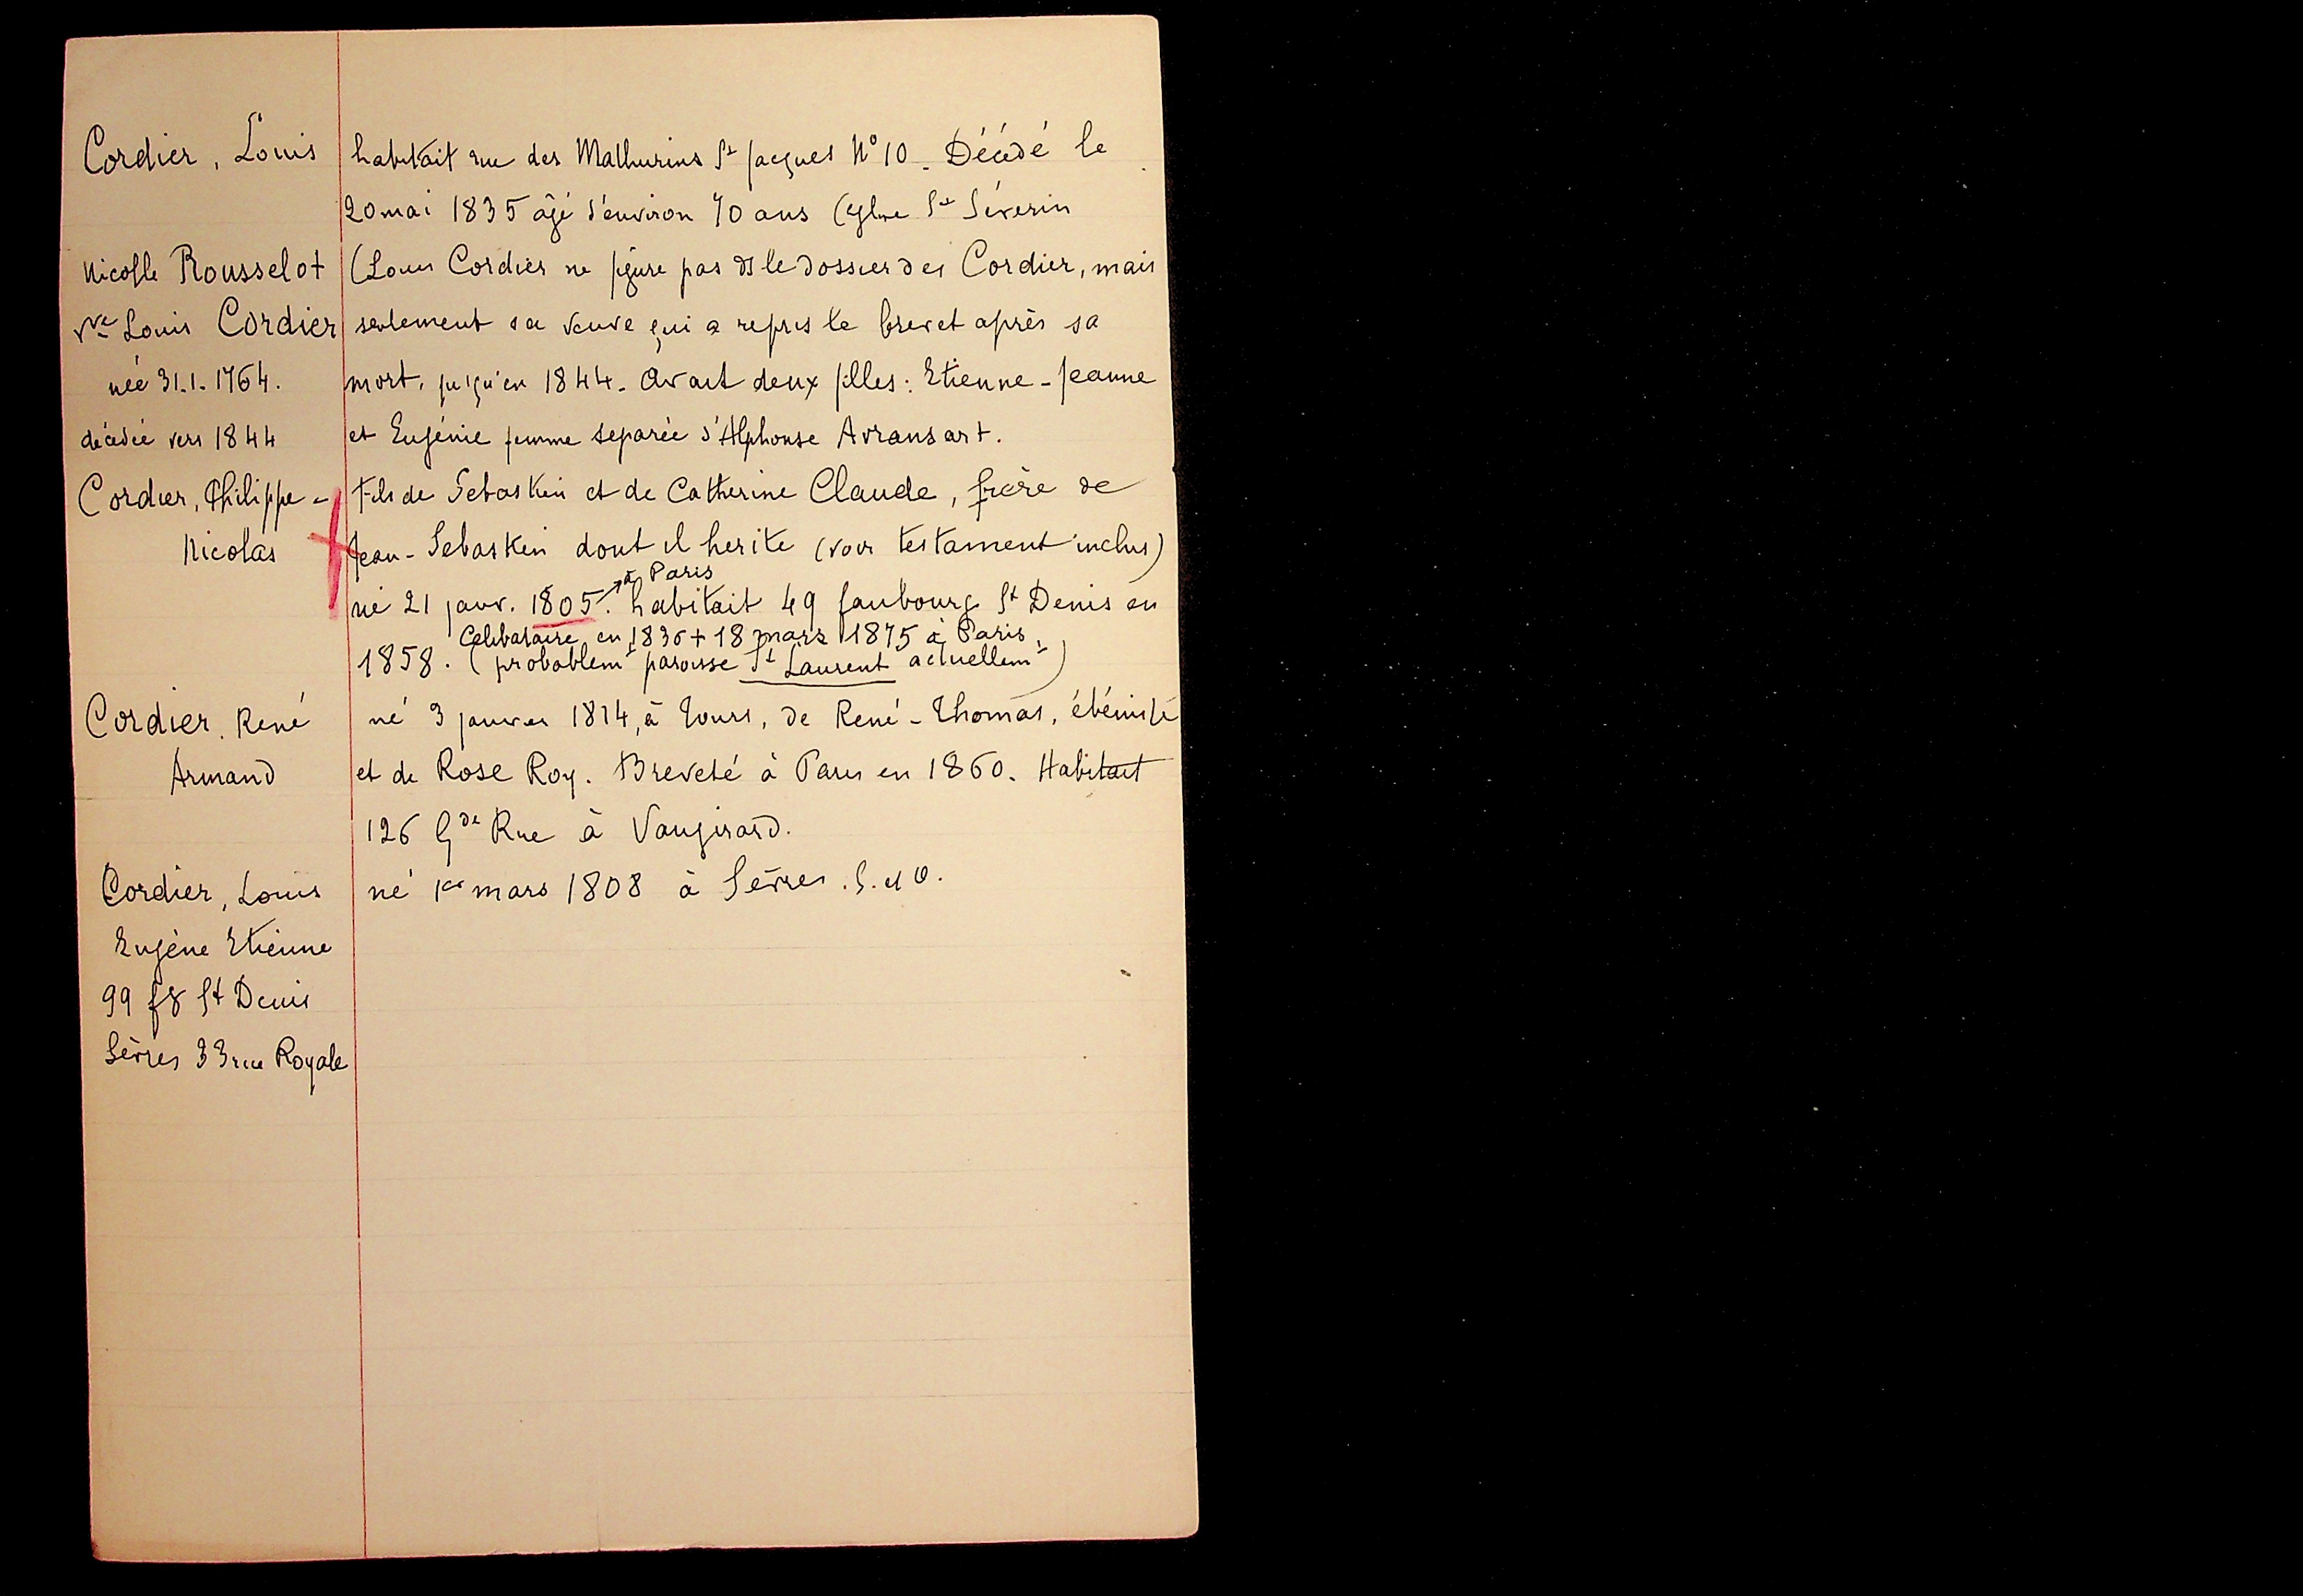 Cordier, Louis habitait rue des Mathurins St Jacques N° 10. Décédé le
20 mai 1835 âgé d'environ 70 ans (église St Séverin
Nicolle Rousselot (Louis Cordier ne figure pas ds le dossier des Cordier, mais
Vve Louis Cordier seulement sa veuve qui a repris le brevet après sa
née 31.1.1764. mort, jusqu'en 1844. Avait deux filles: Etienne-Jeanne
décédée vers 1844 et Eugénie femme separée d'Alphonse Avransart.
Cordier, Philippe- Fils de Sebastien et de Catherine Claude, frère de
Nicolas Jean-Sebastien dont il herite (voir testament inclus)
à Paris
né 21 janv. 1805. habitait 49 faubourg St Denis en
Celibataire en 1836 + 18 mars 1875 à Paris,
1858. (probablemt paroisse St Laurent actuellemt)
Cordier. René né 3 janvier 1814, à Tours, de René-Thomas, ébéniste
Armand et de Rose Roy. Breveté à Paris en 1860. Habitait
126 Gde Rue à Vaugirard.
Cordier, Louis né 1er mars 1808 à Sèvres. S. et O.
Eugène Etienne
99 fg St Denis
Sèvres 33 rue Royale